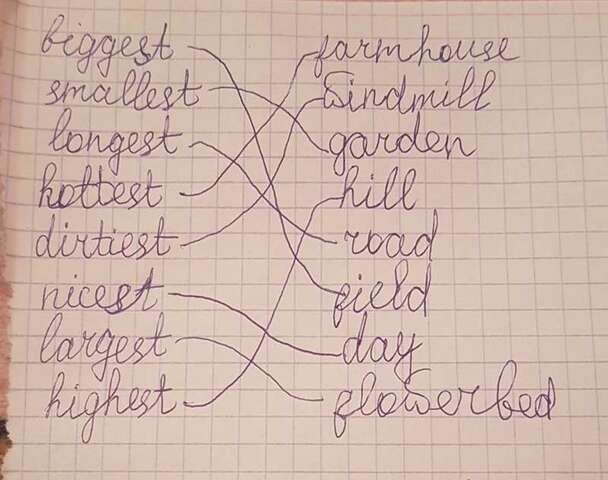 biggest farmhouse
smallest windmill
longest garden
hottest hill
dirtiest road
nicest field
largest day
highest flowerbed